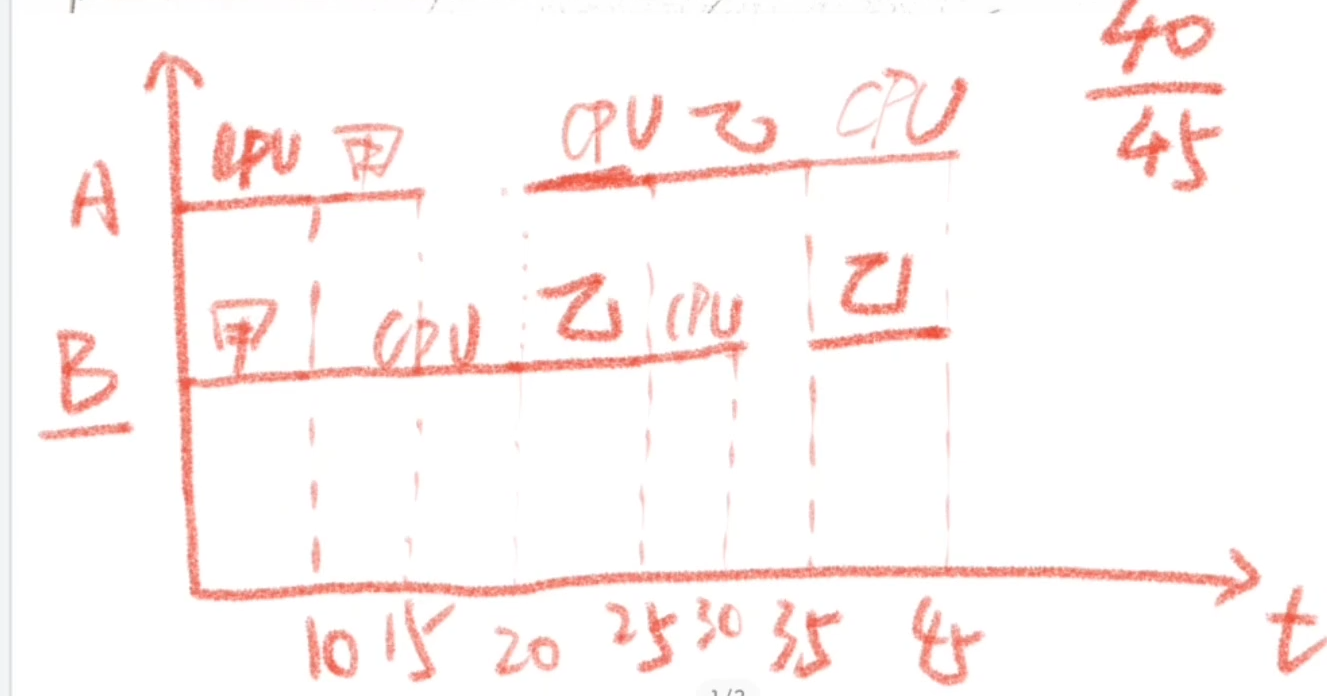 40
45
CPU 乙 CPU
CPU 甲
A
甲 CPU 乙 CPU 乙
B
10 15 20 25 30 35 45 t